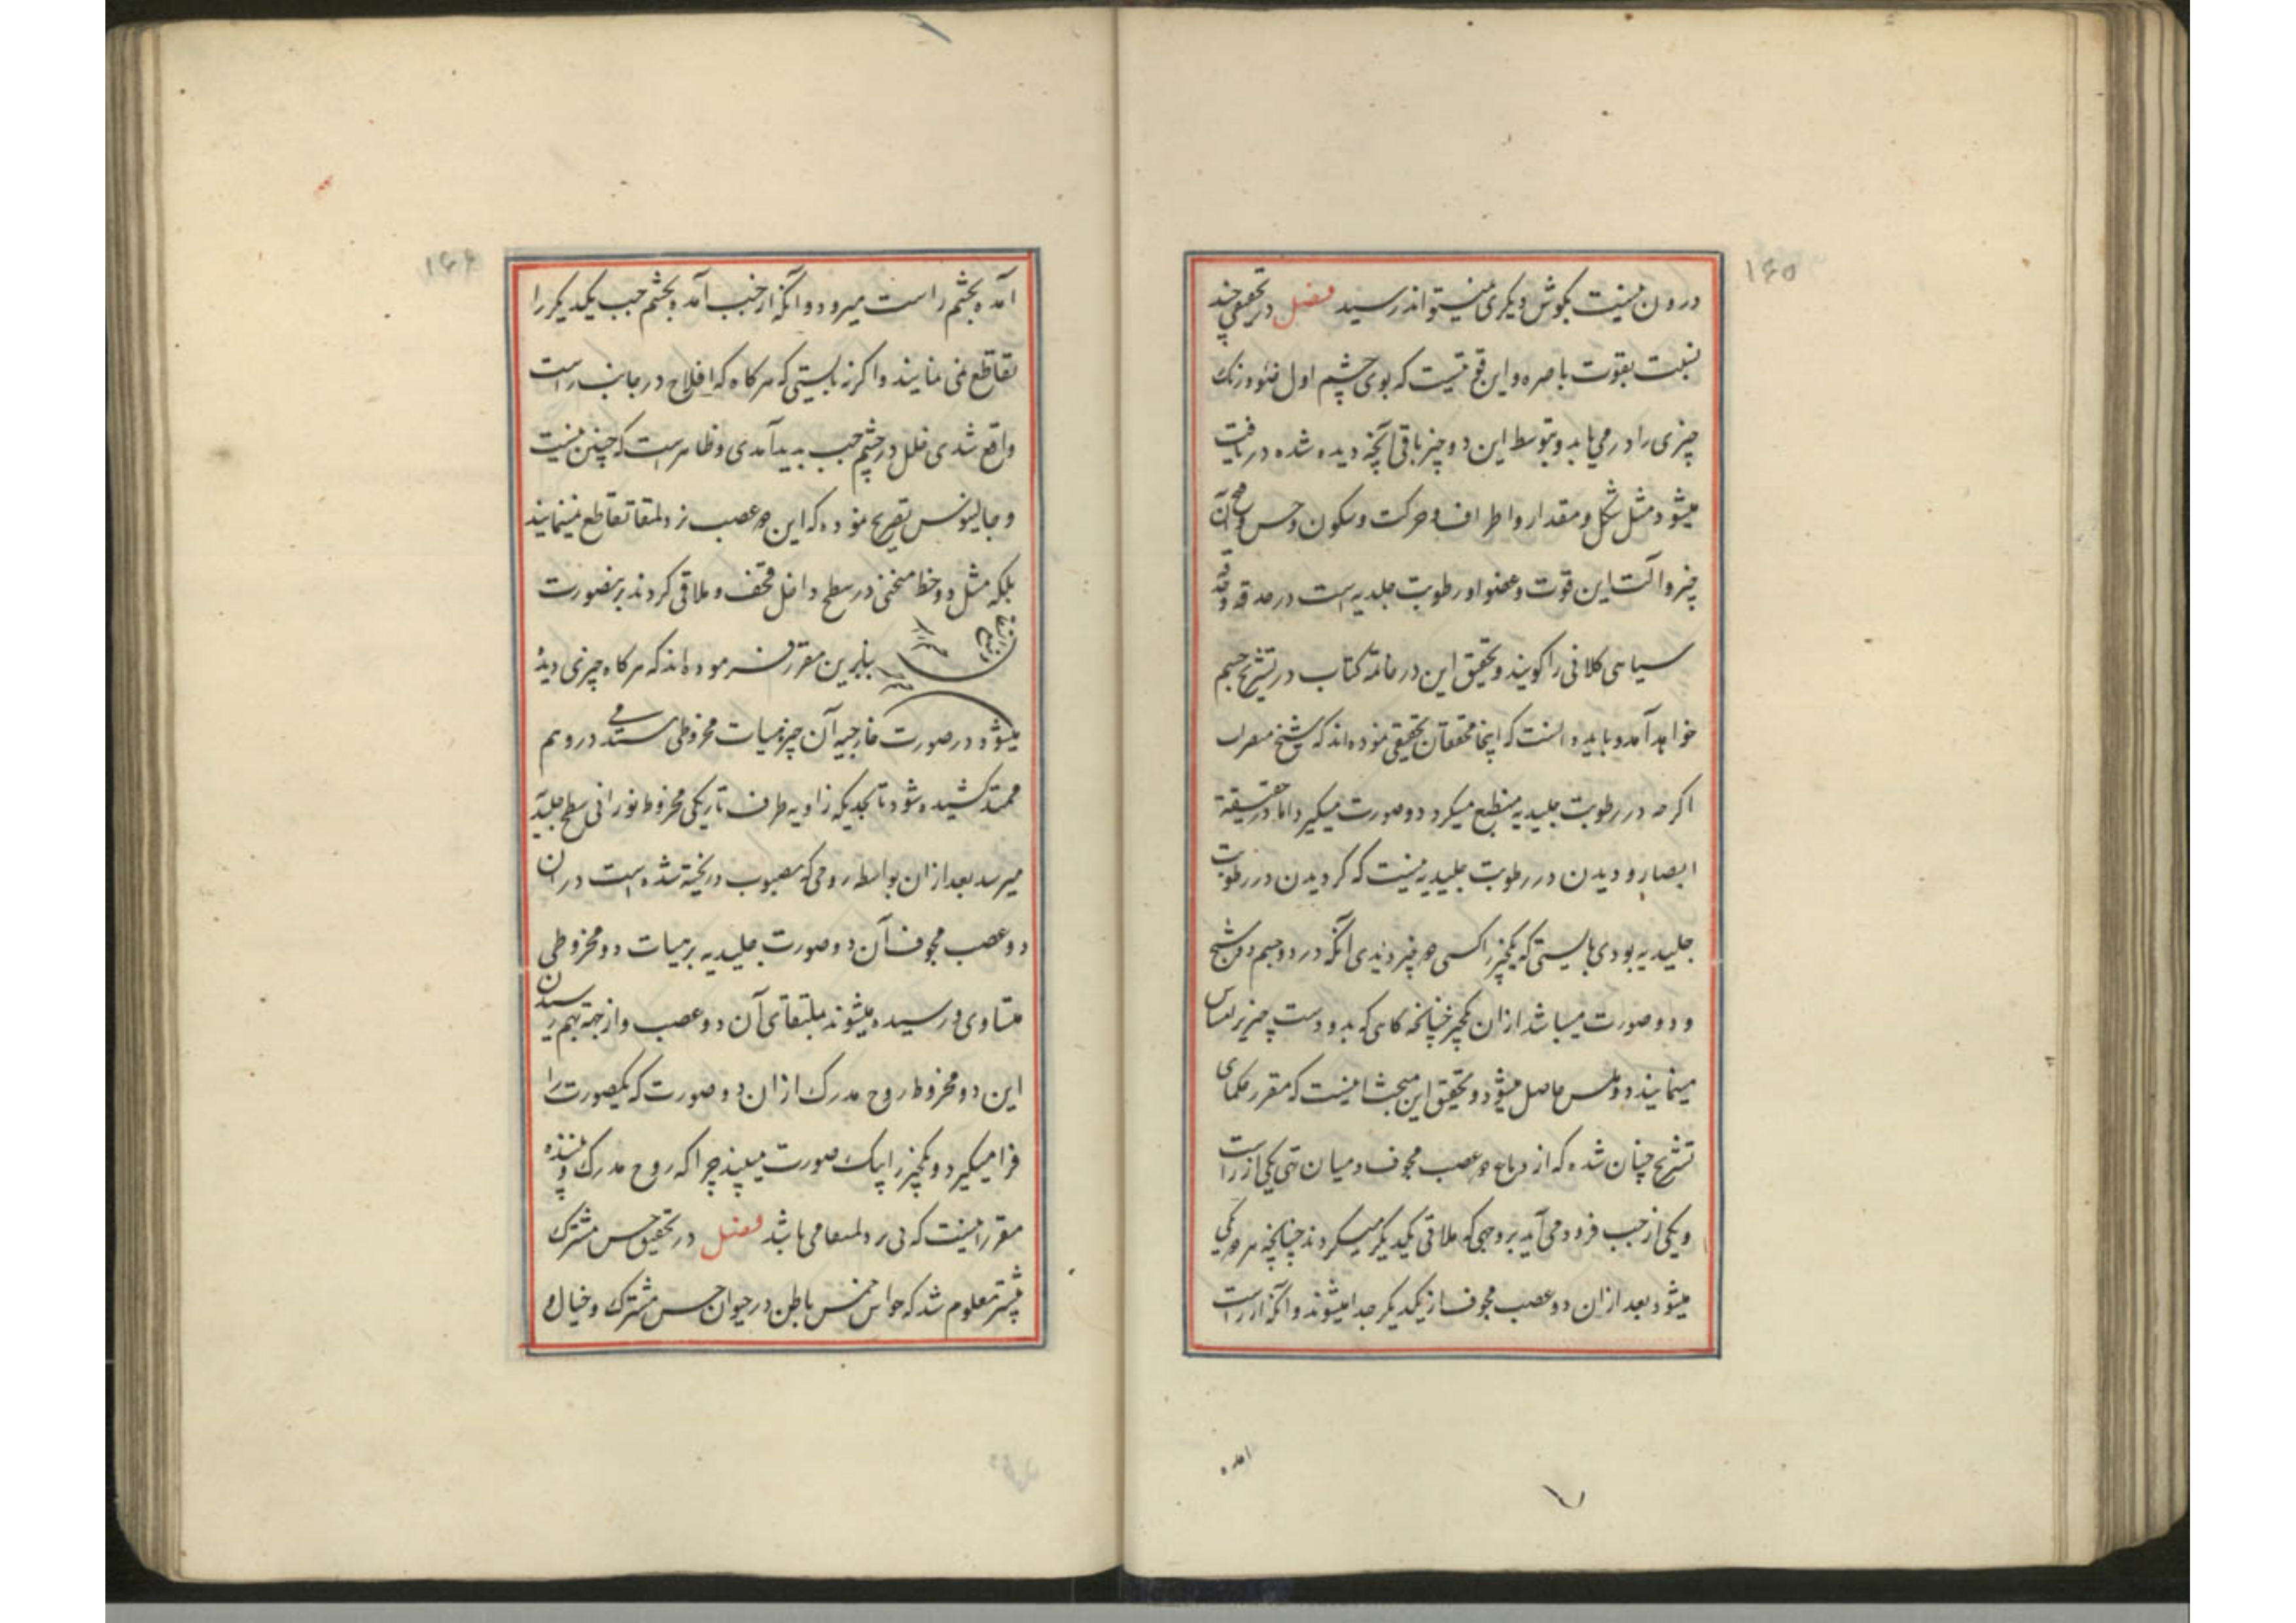 ۱۶۵
درون نیست بگوش دیگری نمیتواند رسید فصل در تحقیق چند
نسبت بقوت باصره و این قوتیست که بوی چشم اول ضوء و رنگ
چیزی را در می یابد و بتوسط این دو چیز باقی آنچه دیده شده دریافت
میشود مثل شکل و مقدار و اطراف و حرکت و سکون و حسن و قبح آن
چیز و آلت این قوت و عضو او رطوبت جلیدیه است در حدقه و حدقه
سیاهی کلانی را گویند و تحقیق این در خاتمه کتاب در تشریح چشم
خواهد آمد و باید دانست که اینجا محققان تحقیقی نموده اند که شبح مبصر
اگرچه در رطوبت جلیدیه منطبع میگردد و صورت میگیرد اما در حقیقة
ابصار و دیدن در رطوبت جلیدیه نیست که گر دیدن در رطوبت
جلیدیه بودی بایستی که یکچیز را کسی دو چیز دیدی آنکه در دو جسم دو شبح
و دو صورت میباشد از ان یکچیز چنانچه گاهی که بدو دست چیزیرا لمس
مینمایند دو لمس حاصل میشود و تحقیق این مبحث اینست که مقرر حکمای
تشریح چنان شده که از دماغ دو عصب مجوف و میان تهی یکی از راست
و یکی از چپ فرود می آید بر وجهی که ملاقی یکدیگر میگردند چنانچه هر دو یکی
میشود بعد از ان دو عصب مجوف از یکدیگر جدا میشوند و آنکه از راست
آمده
۱۶۶
آمده بچشم راست میرود و آنکه از چپ آمده بچشم چپ یکدیگر را
تقاطع نمی نمایند و اگر نه بایستی که هرگاه که افلاج در جانب راست
واقع شدی خلل در چشم چپ بدید آمدی و ظاهرست که چنین نیست
و جالینوس تصریح نموده که این دو عصب نزد ملتقا تقاطع نمینمایند
بلکه مثل دو خط منحنی در سطح داخل قحف و ملاقی گردند برینصورت
بنابرین مقرر فرموده اند که هرگاه چیزی دیده
میشود در صورت خارجیه آن چیز هیات مخروطی در وهم
ممتد کشیده شود تا بحدیکه زاویه طرف تاریکی مخروط نورانی سطح جلیدیه
میرسد بعد ازان بواسطه روحی که مصبوب و ریخته شده است در ان
دو عصب مجوف آن دو صورت جلیدیه بر هیات دو مخروطی
متساوی در رسیده میشوند بملتقای آن دو عصب و از جهة بهم رسیدن
این دو مخروط روح مدرک ازان دو صورت که یکصورت را
فرا میگیرد و یکچیز را بیک صورت میبیند چرا که روح مدرک و بیننده
مقرر اینست که نزد ملتقا می باشد فصل در تحقیق حس مشترک
پیشتر معلوم شد که حواس خمس باطن در حیوان حس مشترک و خیال و